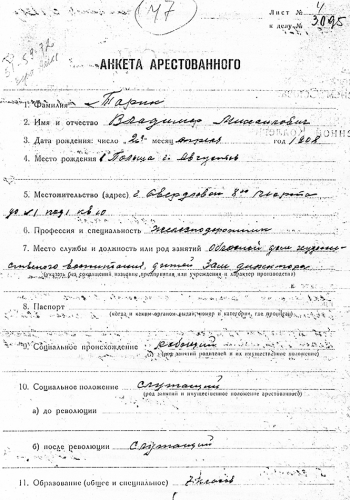 47
Лист № 4
к делу № 3095
АНКЕТА АРЕСТОВАННОГО
1. Фамилия Тарик
2. Имя и отчество Владимир Михайлович
3. Дата рождения: число "2" месяц апреля год 1908
4. Место рождения Польша г. Августов
5. Местожительство (адрес) г. Свердловск 8го марта
6. Профессия и специальность железнодорожник
7. Место службы и должность или род занятий Областной дом художе-
ственного воспитания детей Зам директора
8. Паспорт
(когда и каким органом выдан, номер и категория, где прописан)
9. Социальное происхождение рабочий
(род занятий родителей и их имущественное положение)
10. Социальное положение служащий
(род занятий и имущественное положение арестованного)
а) до революции
б) после революции служащий
11. Образование (общее и специальное) 7 классов